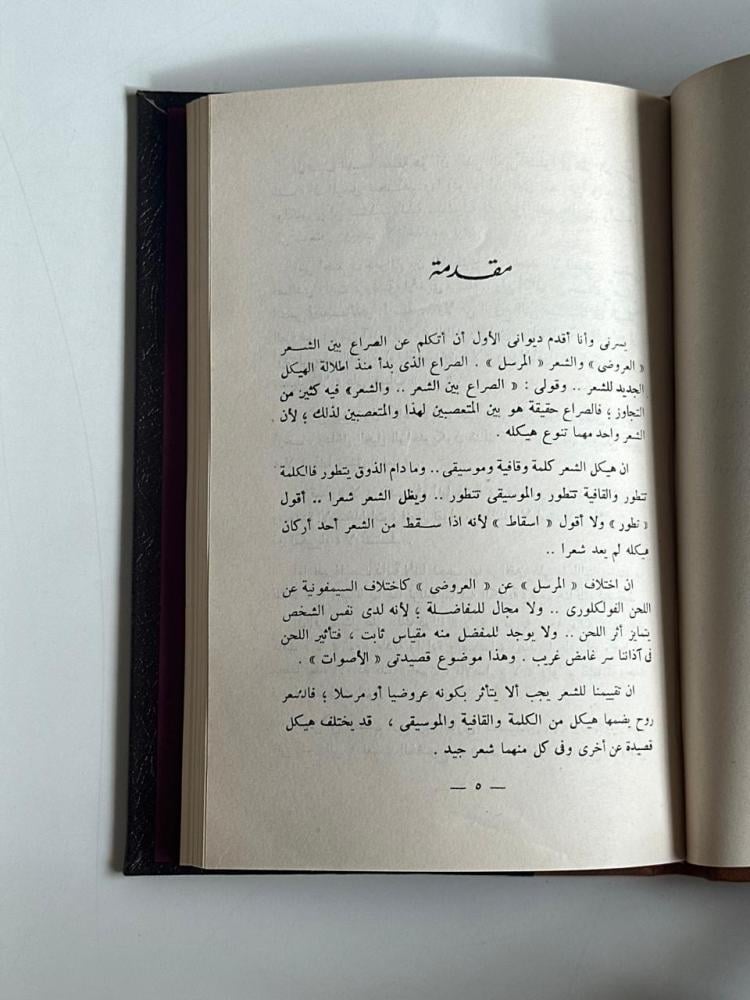 مقدمة
يسرنى وأنا أقدم ديوانى الأول أن أتكلم عن الصراع بين الشعر
« العروضى » والشعر « المرسل » . الصراع الذى بدأ منذ اطلالة الهيكل
الجديد للشعر .. وقولى : « الصراع بين الشعر .. والشعر » فيه كثير من
التجاوز ؛ فالصراع حقيقة هو بين المتعصبين لهذا والمتعصبين لذلك ؛ لأن
الشعر واحد مهما تنوع هيكله .
ان هيكل الشعر كلمة وقافية وموسيقى .. وما دام الذوق يتطور فالكلمة
تتطور والقافية تتطور والموسيقى تتطور .. ويظل الشعر شعرا .. أقول
« تطور » ولا أقول « اسقاط » لأنه اذا سقط من الشعر أحد أركان
هيكله لم يعد شعرا ..
ان اختلاف « المرسل » عن « العروضى » كاختلاف السيمفونية عن
اللحن الفولكلورى .. ولا مجال للمفاضلة ؛ لأنه لدى نفس الشخص
يتمايز أثر اللحن .. ولا يوجد للمفضل منه مقياس ثابت ، فتأثير اللحن
فى آذاننا سر غامض غريب . وهذا موضوع قصيدتى « الأصوات » .
ان تقييمنا للشعر يجب ألا يتأثر بكونه عروضيا أو مرسلا ؛ فالشعر
روح يضمها هيكل من الكلمة والقافية والموسيقى ، قد يختلف هيكل
قصيدة عن أخرى وفى كل منهما شعر جيد .
— ٥ —